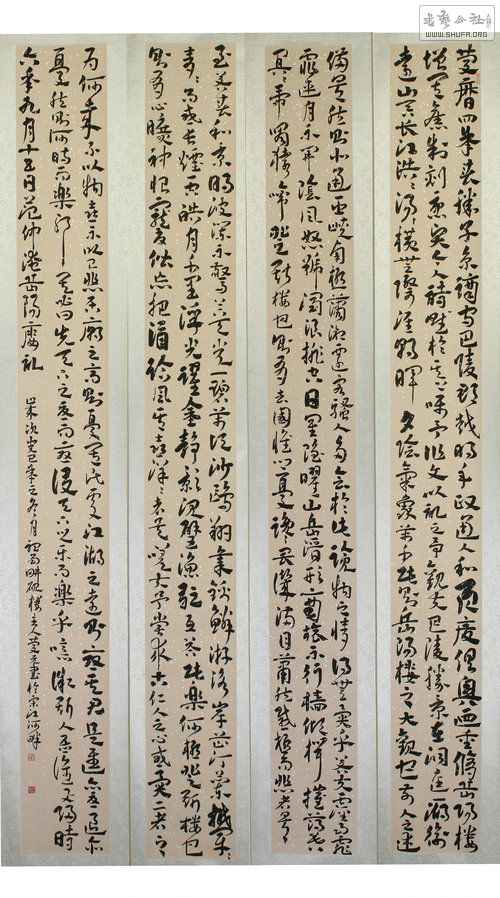 書藝公社
WWW.SHUFA.ORG
慶曆四年春滕子京謫守巴陵郡越明年政通人和百廢俱興迺重修岳陽樓
增其舊制刻唐賢今人詩賦於其上予作文以記之予觀夫巴陵勝狀在洞庭一湖銜
遠山吞長江浩〻湯〻橫無際涯朝暉夕陰氣象萬千此則岳陽樓之大觀也前人之述
備矣然則北通巫峽南極瀟湘遷客騷人多會於此覽物之情得無異乎若夫霪雨霏
霏連月不開陰風怒號濁浪排空日星隱曜山岳潛形商旅不行檣傾楫摧薄暮
冥〻虎嘯猿啼登斯樓也則有去國懷鄉憂讒畏譏滿目蕭然感極而悲者矣
至若春和景明波瀾不驚上下天光一碧萬頃沙鷗翔集錦鱗游泳岸芷汀蘭郁〻
青〻而或長煙一空皓月千里浮光躍金靜影沉璧漁歌互答此樂何極登斯樓也
則有心曠神怡寵辱偕忘把酒臨風其喜洋〻者矣嗟夫予嘗求古仁人之心或異二者之
為何哉不以物喜不以己悲居廟堂之高則憂其民處江湖之遠則憂其君是進亦憂退亦
憂然則何時而樂耶其必曰先天下之憂而憂後天下之樂而樂乎噫微斯人吾誰與歸時
六年九月十五日范仲淹岳陽樓記
歲次之冬月書於江河畔